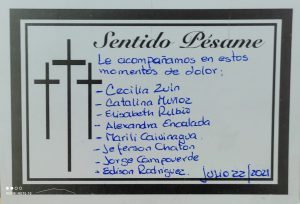 Sentido Pésame
Le acompañamos en estos
momentos de dolor:
- Cecilia Zuin
- Catalina Muñoz
- Elisabeth Rubio
- Alexandra Encalada
- Marili Caivinagua
- Jeferson Chalon
- Jorge Campoverde
- Edison Rodriguez.
Julio 22/2021